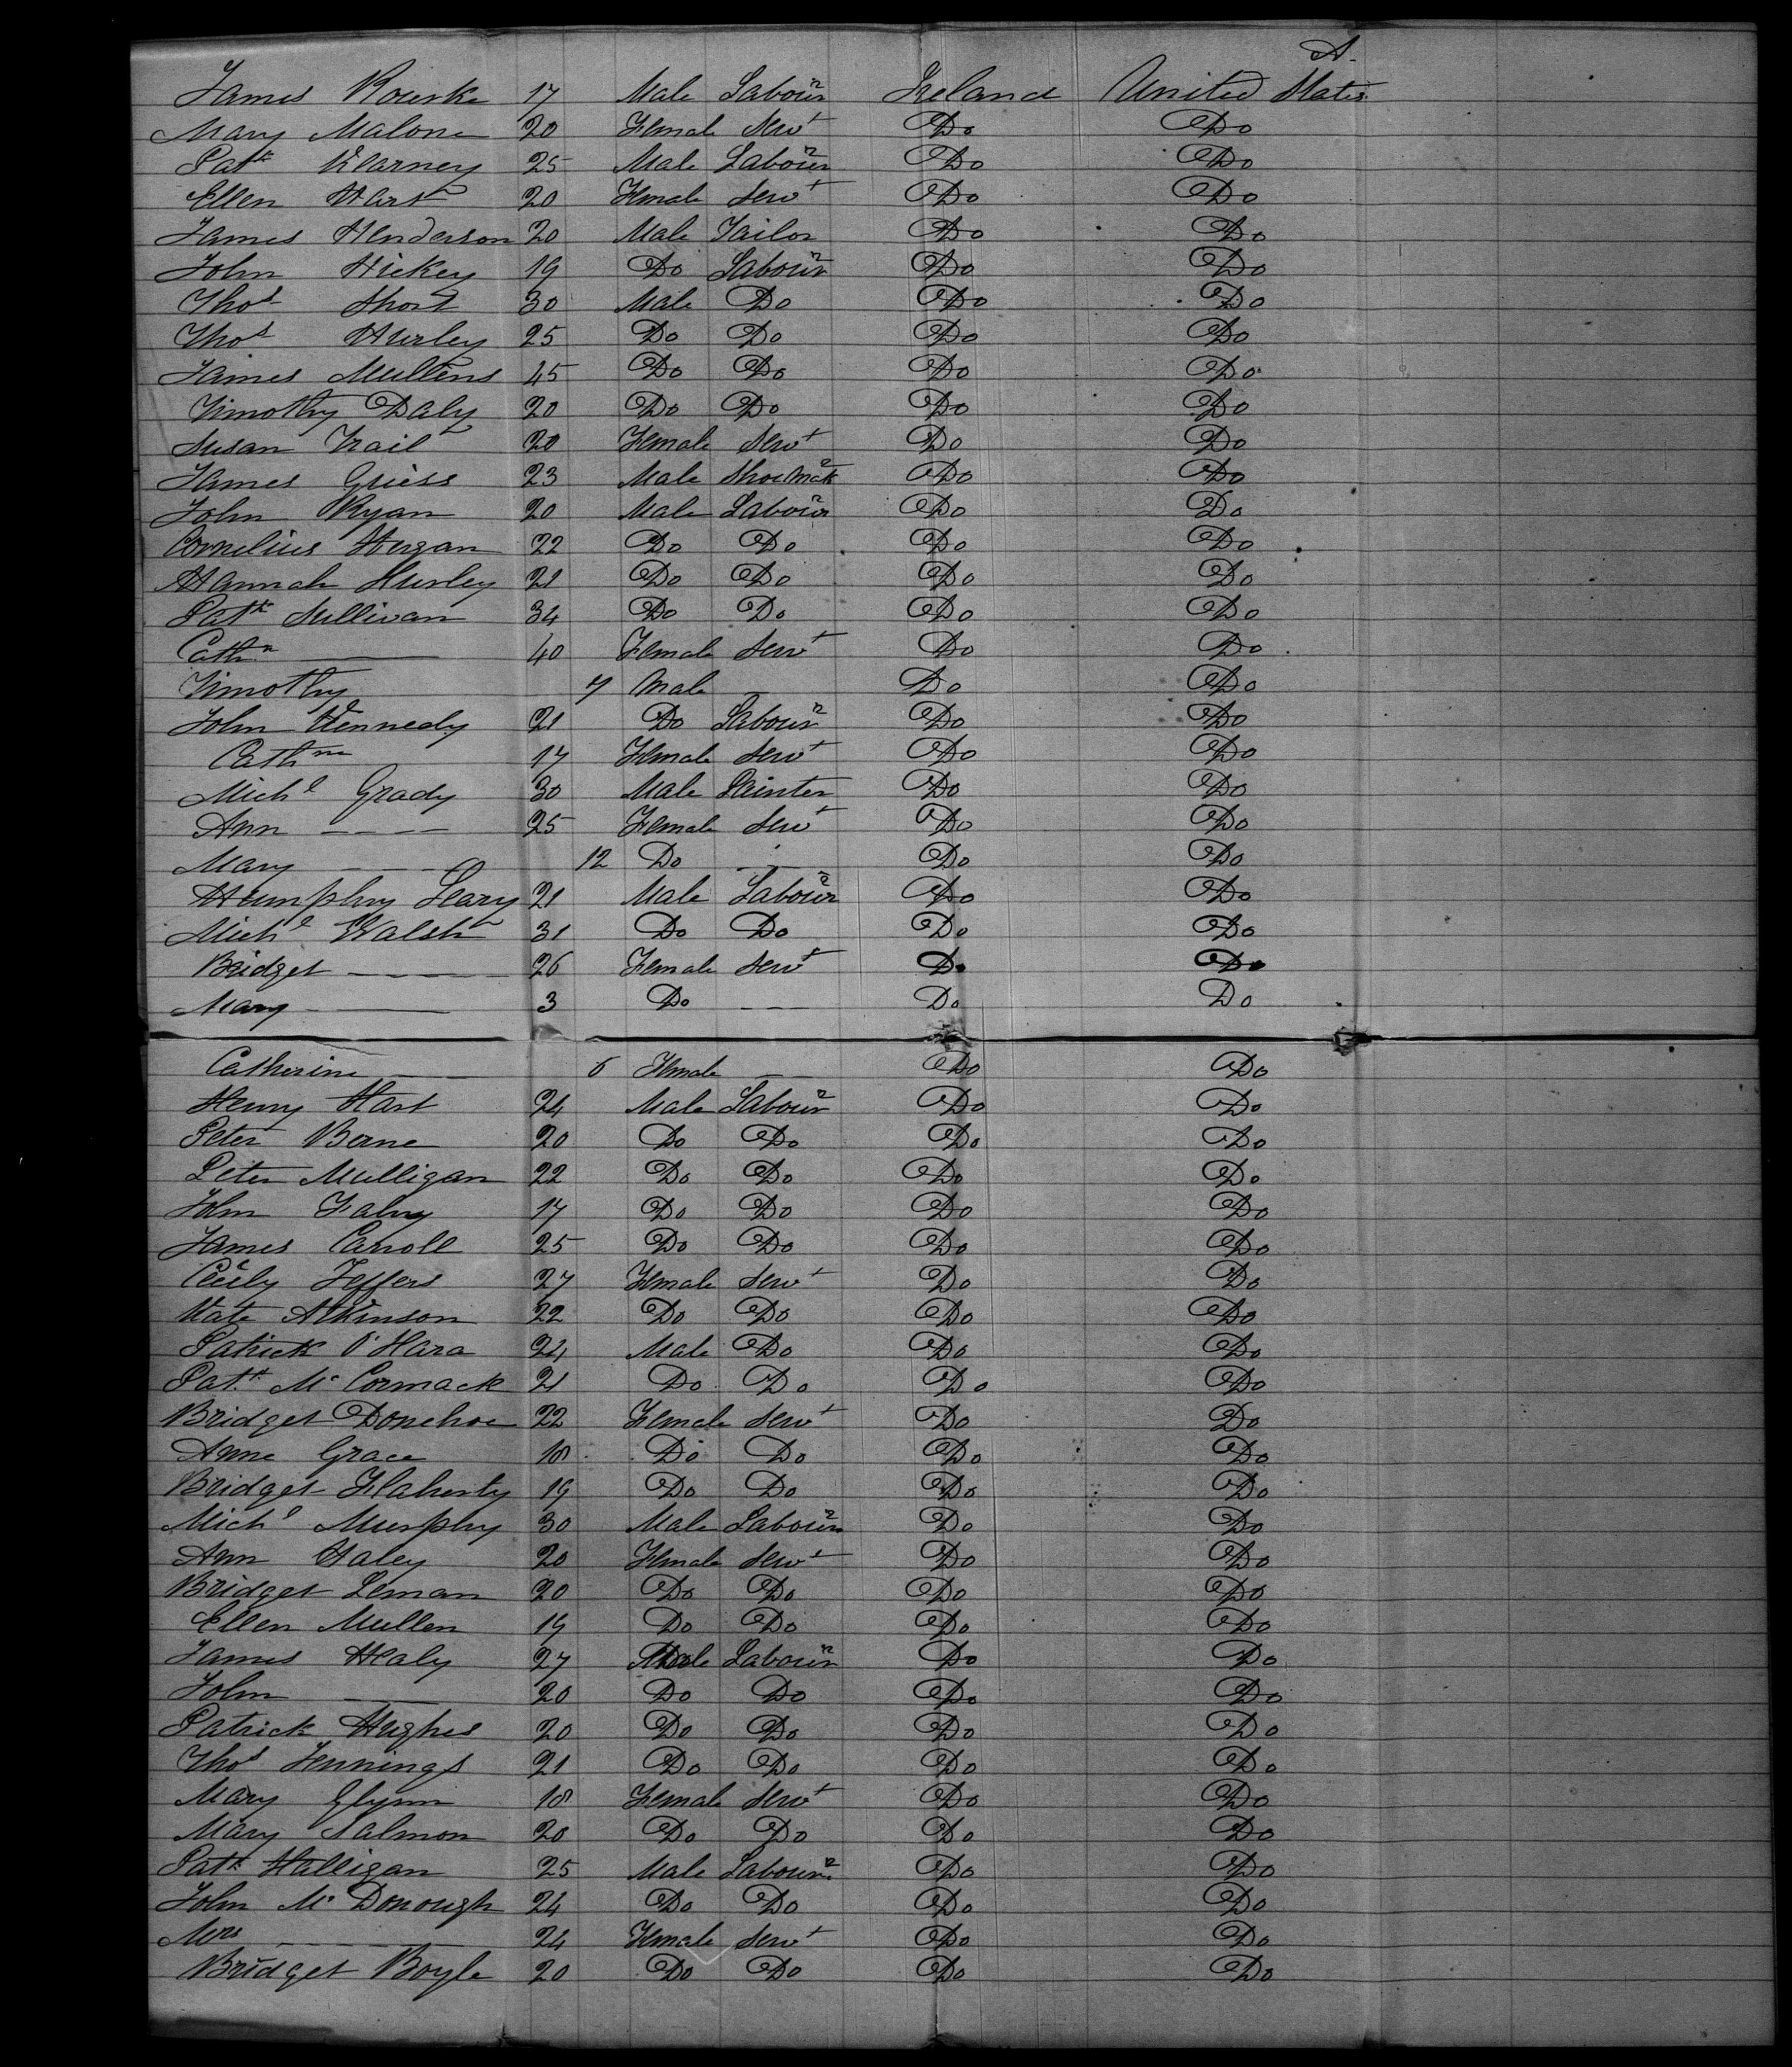 A.
James Rourke 17 Male Labour^r Ireland United States
Mary Malone 20 Female Serv^t Do Do
Pat^k Kearney 25 Male Labour^r Do Do
Ellen Hart 20 Female Serv^t Do Do
James Henderson 20 Male Tailor Do Do
John Hickey 19 Do Labour^r Do Do
Tho^s Short 30 Male Do Do Do
Tho^s Hurley 25 Do Do Do Do
James Mullens 45 Do Do Do Do
Timothy Daly 20 Do Do Do Do
Susan Trail 20 Female Serv^t Do Do
James Griess 23 Male Shoemak^r Do Do
John Ryan 20 Male Labour^r Do Do
Cornelius Hegan 22 Do Do Do Do
Hannah Hurley 21 Do Do Do Do
Pat^k Sullivan 34 Do Do Do Do
Cath^n — 40 Female Serv^t Do Do
Timothy 7 Male Do Do
John Kennedy 21 Do Labour^r Do Do
Cath^ne 17 Female Serv^t Do Do
Mich^l Grady 30 Male Painter Do Do
Ann — 25 Female Serv^t Do Do
Mary — 12 Do — Do Do
Humphry Leary 21 Male Labour^r Do Do
Mich^l Walsh 31 Do Do Do Do
Bridget — 26 Female Serv^t Do Do
Mary — 3 Do — Do Do
Catherine — 6 Female — Do Do
Henry Hart 24 Male Labour^r Do Do
Peter Berne 20 Do Do Do Do
Peter Mulligan 22 Do Do Do Do
John Fahy 17 Do Do Do Do
James Carroll 25 Do Do Do Do
Cecily Jeffers 27 Female Serv^t Do Do
Kate Atkinson 22 Do Do Do Do
Patrick O'Hara 24 Male Do Do Do
Pat^k Mc Cormack 21 Do Do Do Do
Bridget Donehoe 22 Female Serv^t Do Do
Anne Grace 18 Do Do Do Do
Bridget Flaherty 19 Do Do Do Do
Mich^l Murphy 30 Male Labour^r Do Do
Ann Haley 20 Female Serv^t Do Do
Bridget Leman 20 Do Do Do Do
Ellen Mullen 19 Do Do Do Do
James Healy 27 Male Labour^r Do Do
John — 20 Do Do Do Do
Patrick Hughes 20 Do Do Do Do
Tho^s Jennings 21 Do Do Do Do
Mary Glynn 18 Female Serv^t Do Do
Mary Salmon 20 Do Do Do Do
Pat^k Halligan 25 Male Labour^r Do Do
John Mc Donough 24 Do Do Do Do
Mrs — 24 Female Serv^t Do Do
Bridget Boyle 20 Do Do Do Do